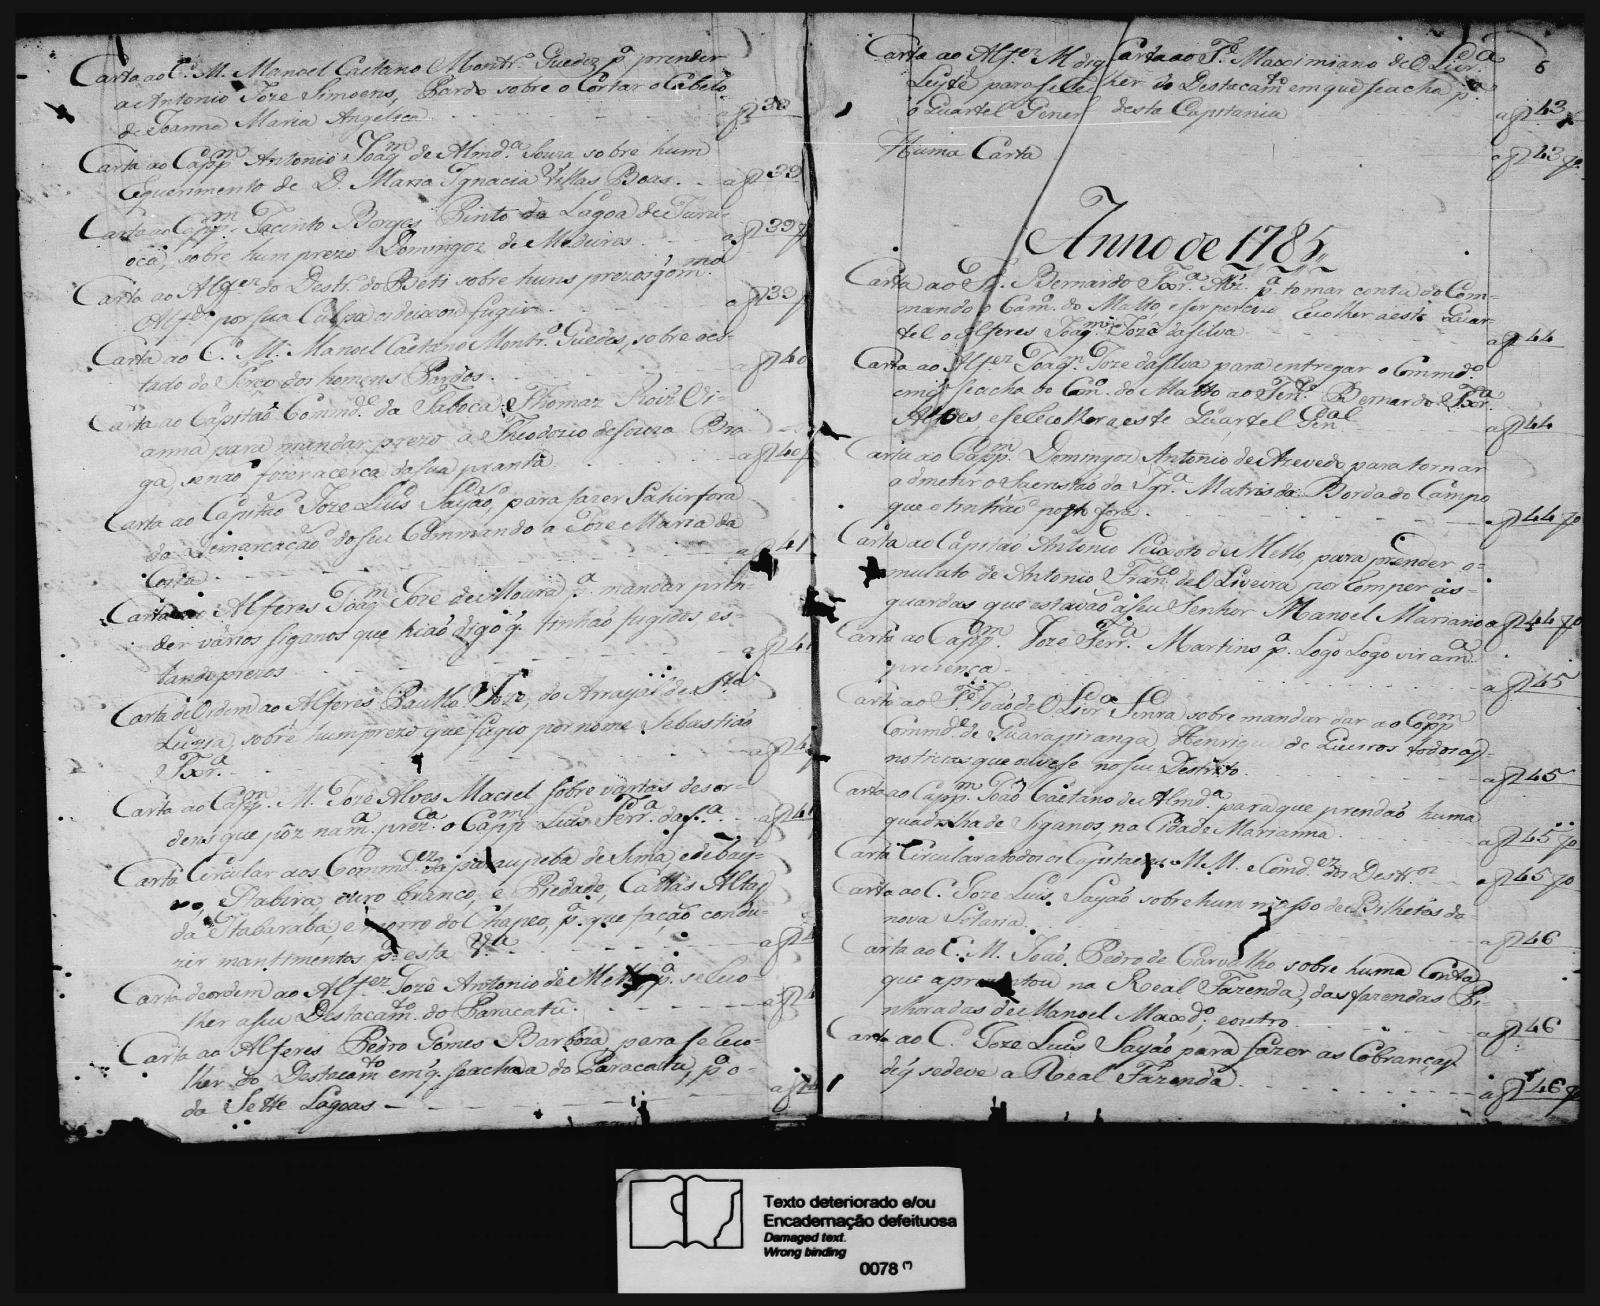 Carta ao C. M. Manoel Caetano Montr.º Guedes p.ª prender
a Antonio Joze Simoens, Pardo sobre o Cortar o Cabelo
de Joanna Maria Angelica a f 38
Carta ao Capp.m Antonio Joaq.m de Almd.ª Souza sobre hum
requerimento de D. Maria Ignacia Villas Boas. a f 39
Carta ao Capp.m Jacinto Borges Pinto da Lagoa de Juru-
oca, sobre hum prezo Domingos de Medeiros. a f 39
Carta ao Alferez do Destr.º do Beti sobre huns prezos q̃ o m.mo
Alfz por sua Culpa os deixou fugir. a f 39
Carta ao C. M. Manoel Caetano Montr.º Guedes, sobre o es-
tado do Terço dos homens Pardos. a f 40
Carta ao Capitaõ Comnd.e da Taboca Thomaz Roiz Vi-
anna para mandar prezo a Theodozio de Souza Bra-
ga, senaõ fozer acerca da sua planta a f 40
Carta ao Capitaõ Joze Luis Sayaõ, para fazer Sahir fora
da Demarcaçaõ do seu Commando a Joze Maria da
Costa a f 41
Carta ao Alferes Joaq.m Joze de Moura p.ª mandar pren-
der varios siganos que hiaõ digo q̃ tinhaõ fugidos es-
tando prezos a f 41
Carta de Ordem ao Alferes Paullo Joze, do Arrayal de S.ta
Luzia, sobre hum prezo que fugio por nome Sebastiaõ
Txr.ª a f 4
Carta ao Capp.m M. Joze Alves Maciel sobre varias desor-
dens que pôz na m.ª prez.ça o Capp.m Luis Ferr.ª da S.ª a f 41
Carta Circular aos Commd.ez da paraupeba de Sima, e de bay-
xo, Itabira, ouro branco, e Piedade, Cattas Altas
da Itabaraba, e morro do Chapeo, p.ª que façaõ condu-
zir mantimentos p.ª esta V.ª a f 4
Carta de ordem ao Alfez Joze Antonio de Mello p.ª se leco-
lher a seu Destacam.to do Paracatu. a f 4
Carta ao Alferes Pedro Gomes Barboza, para se leco-
lher do Destacam.to em q̃ se acha do Paracatu, p.ª o-
da Sette Lagoas a f
Carta ao Alfez M. dig Carta ao T.e Maximiano de Oliv.ra
Leyte para se leco lher do Destacam.to em que se acha p.ª
o Quartel Gener desta Capitania a f 43
Huma Carta a f 43 v
6
Anno de 1785
Carta ao T.e Bernardo Txr.ª Alz p.ª tomar conta do Com-
mando o Cam.º do Matto, e fer percizo lecolher a este Quar-
tel o Alferes Joaq.m Joze da Silva a f 44
Carta ao Alfez Joaq.m Joze da Silva para entregar o Commd.º
em q̃ se acha do Cam.º do Matto ao Ten.te Bernardo Txr.ª
Alves, e se lecolher a este Quartel Gen.al a f 44
Carta ao Capp.m Domingos Antonio de Azevedo para tornar
admetir o Sacristaõ da Igr.ª Matris da Borda do Campo
que o tinhaõ posto fora. a f 44 v
Carta ao Capitaõ Antonio Peixoto de Mello, para prender o-
mulato de Antonio Fran.co de Oliveira, por lomper as-
guardas que estavaõ a seu Senhor Manoel Mariano a f 44 v
Carta ao Capp.m Joze Ferr.ª Martins p.ª Logo Logo vir a m.ª
prezença a f 45
Carta ao T.e Joaõ de Oliv.ra Senra, sobre mandar dar ao Capp.m
Commd.e de Guarapiranga, Henrique de Queiros todos as
noticias que ouvese no seu Destrito. a f 45
Carta ao Capp.m Joaõ Caetano de Almd.ª para que prendaõ huma
quadrilha de Siganos, na Cidade Marianna. a f 45 v
Carta Circular a todos os Capitaens M M. e Comd.ez dos Destr.os a f 45 v
Carta ao C. Joze Luis Sayaõ sobre hum masso de Bilhetes da
nova Lotaria a f 46
Carta ao C. M. Joaõ Pedro de Carvalho sobre huma Conta
que aprezentou na Real Fazenda, das fazendas Pi-
nhoradas de Manoel Maxd.º, e outro a f 46
Carta ao C. Joze Luis Sayaõ para fazer as Cobranças
de q̃ se deve a Real Fazenda. a f 46 v
Texto deteriorado e/ou
Encadernação defeituosa
Damaged text.
Wrong binding
0078 (*)